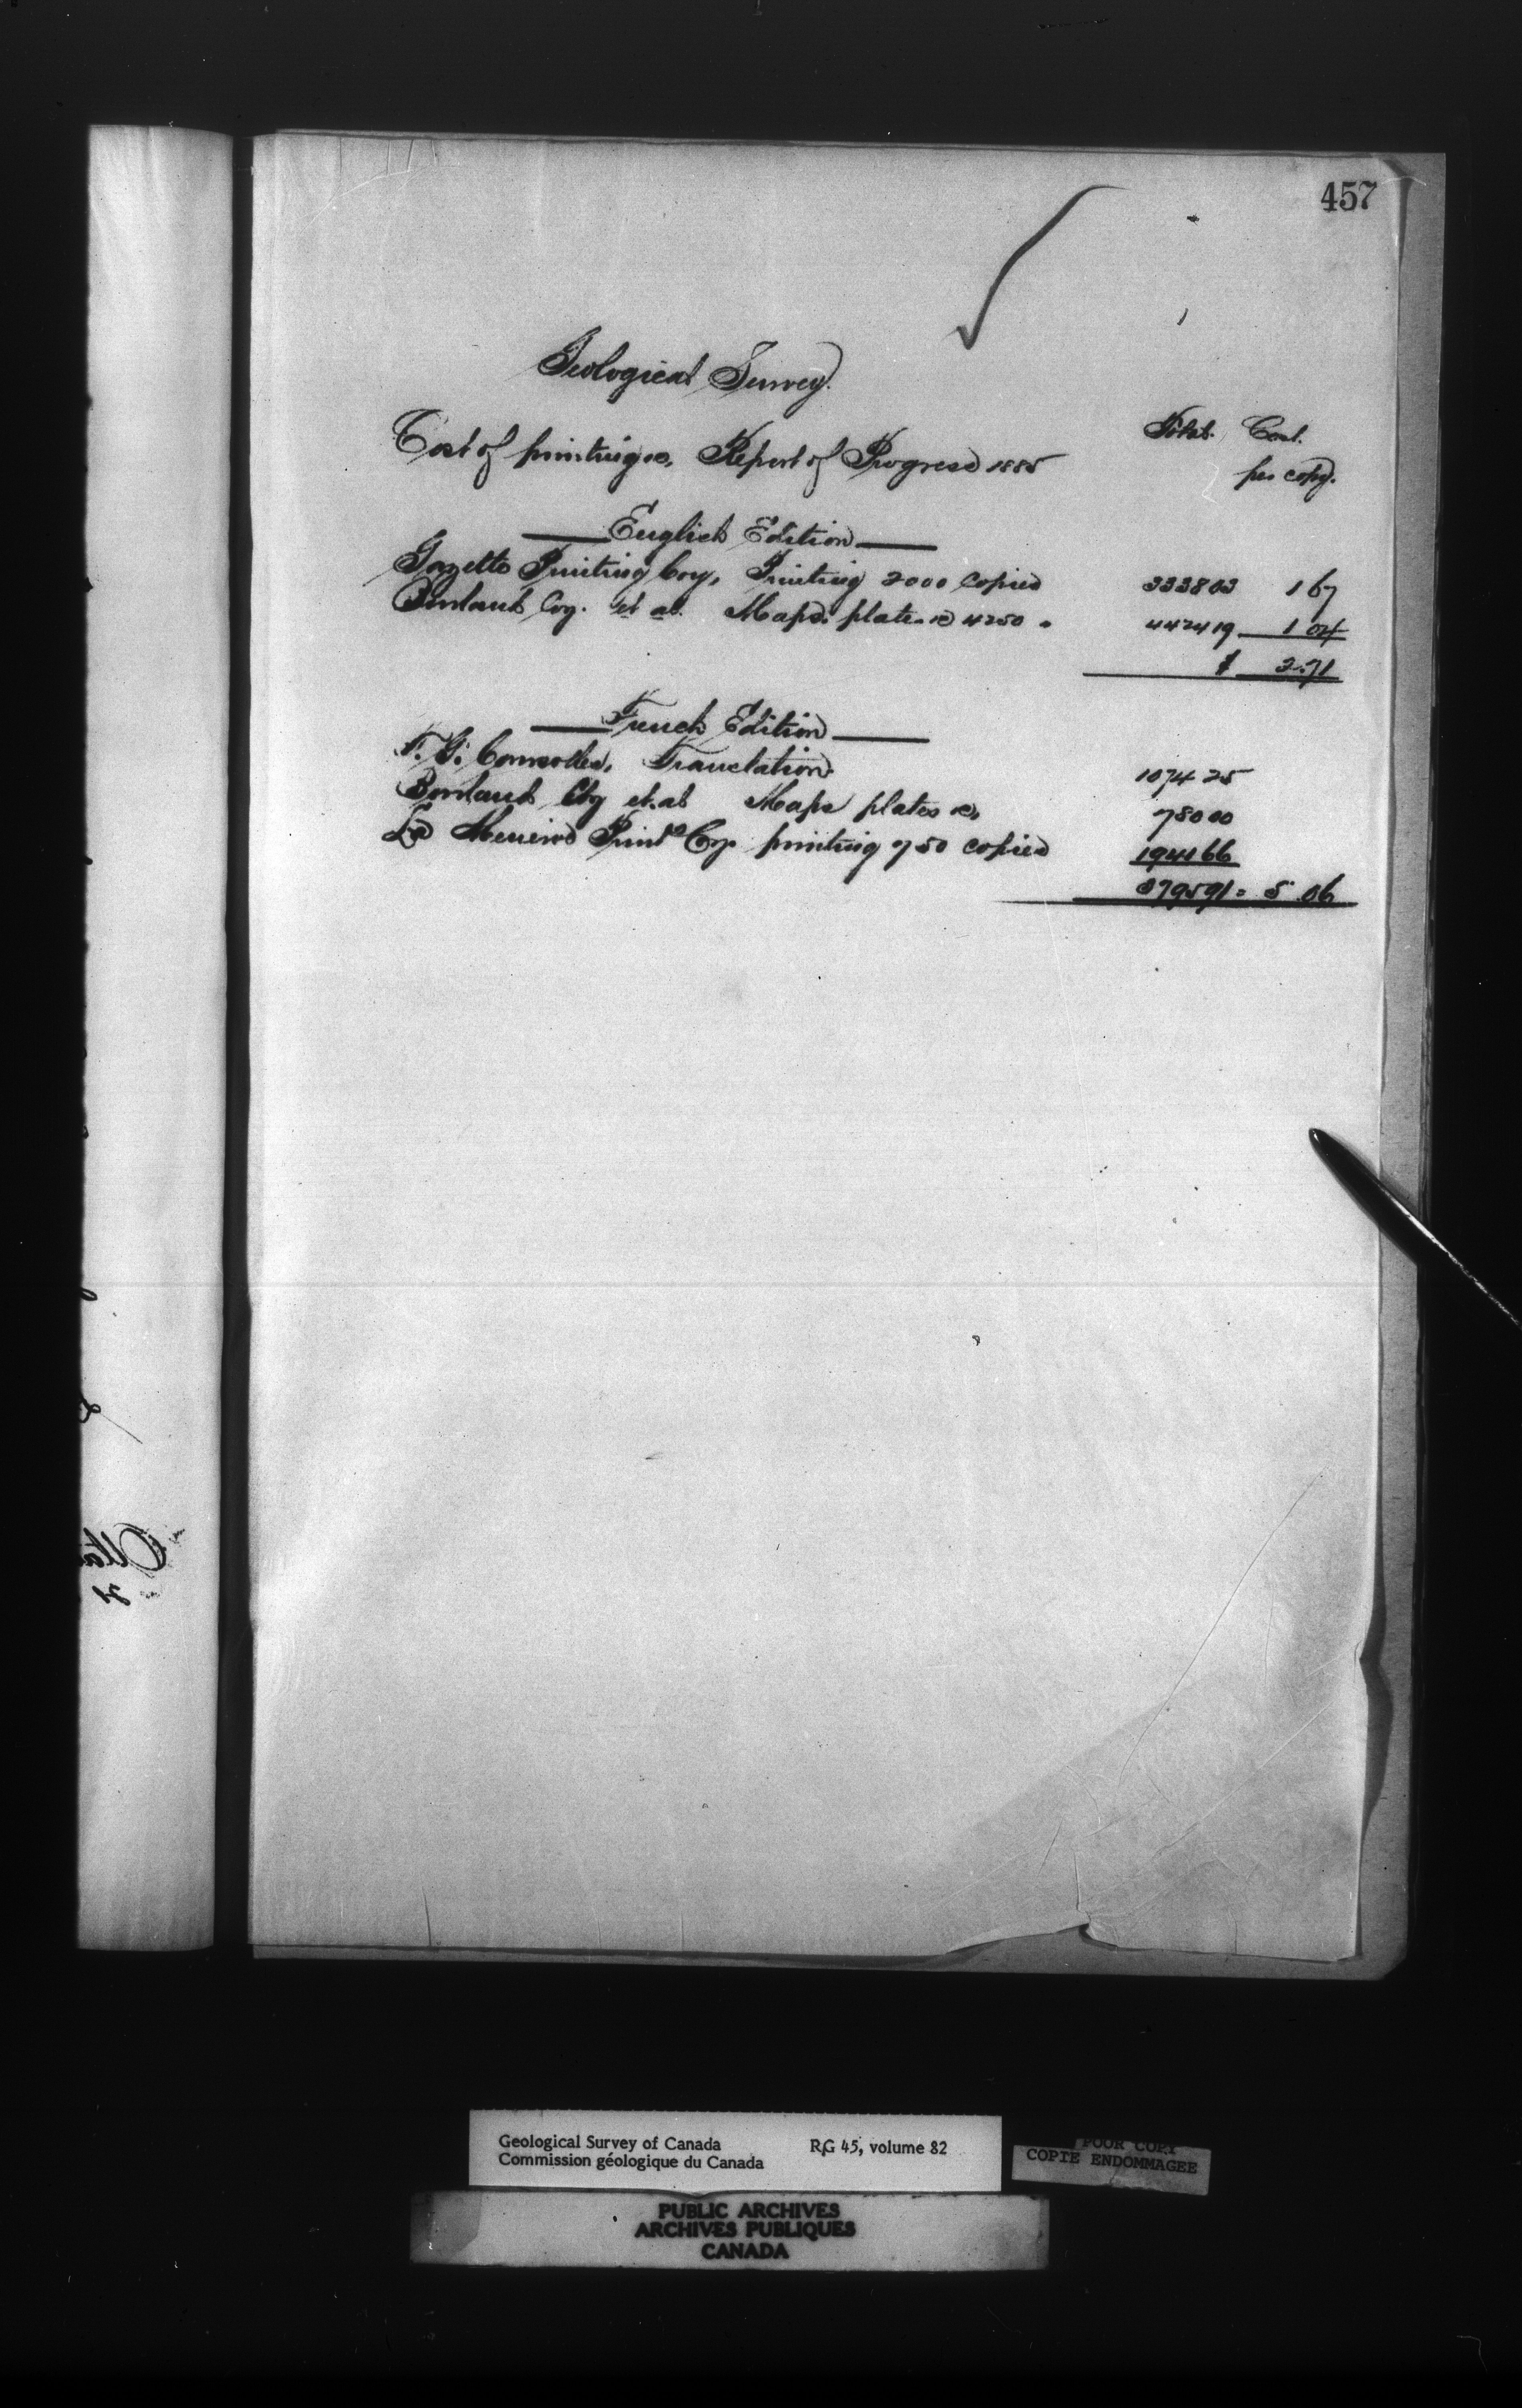 457
Geological Survey.
Cost of printing &c. Report of Progress 1885
Total. Cost.
per copy.
English Edition
Gazette Printing Coy, Printing 2000 Copies 3338 03 1 67
Burland Coy. et al. Maps. plates &c 4250 " 4424 19 1 04
$ 2.71
French Edition
Translation. 1074 25
Burland Coy et al Maps plates &c, 780 00
Le Printg Coy printing 750 copies 1941 66
3795 91 = 5 06
Geological Survey of Canada RG 45, volume 82
Commission géologique du Canada
POOR COPY
COPIE ENDOMMAGEE
PUBLIC ARCHIVES
ARCHIVES PUBLIQUES
CANADA